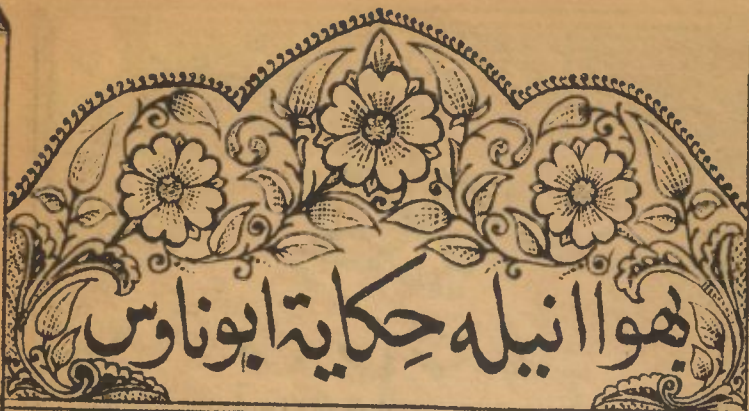 بهوا انيله حِكاية ابوناوس